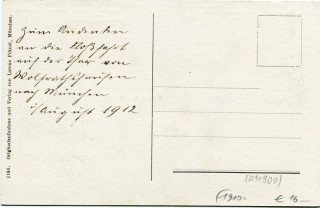 Zum Andenken
an die Floßfahrt
auf der Isar von
Wolfratshausen
nach München
August 1912
1194. Originalaufnahme und Verlag von Lorenz Fränzl, München.
(1910)
€ 16.-